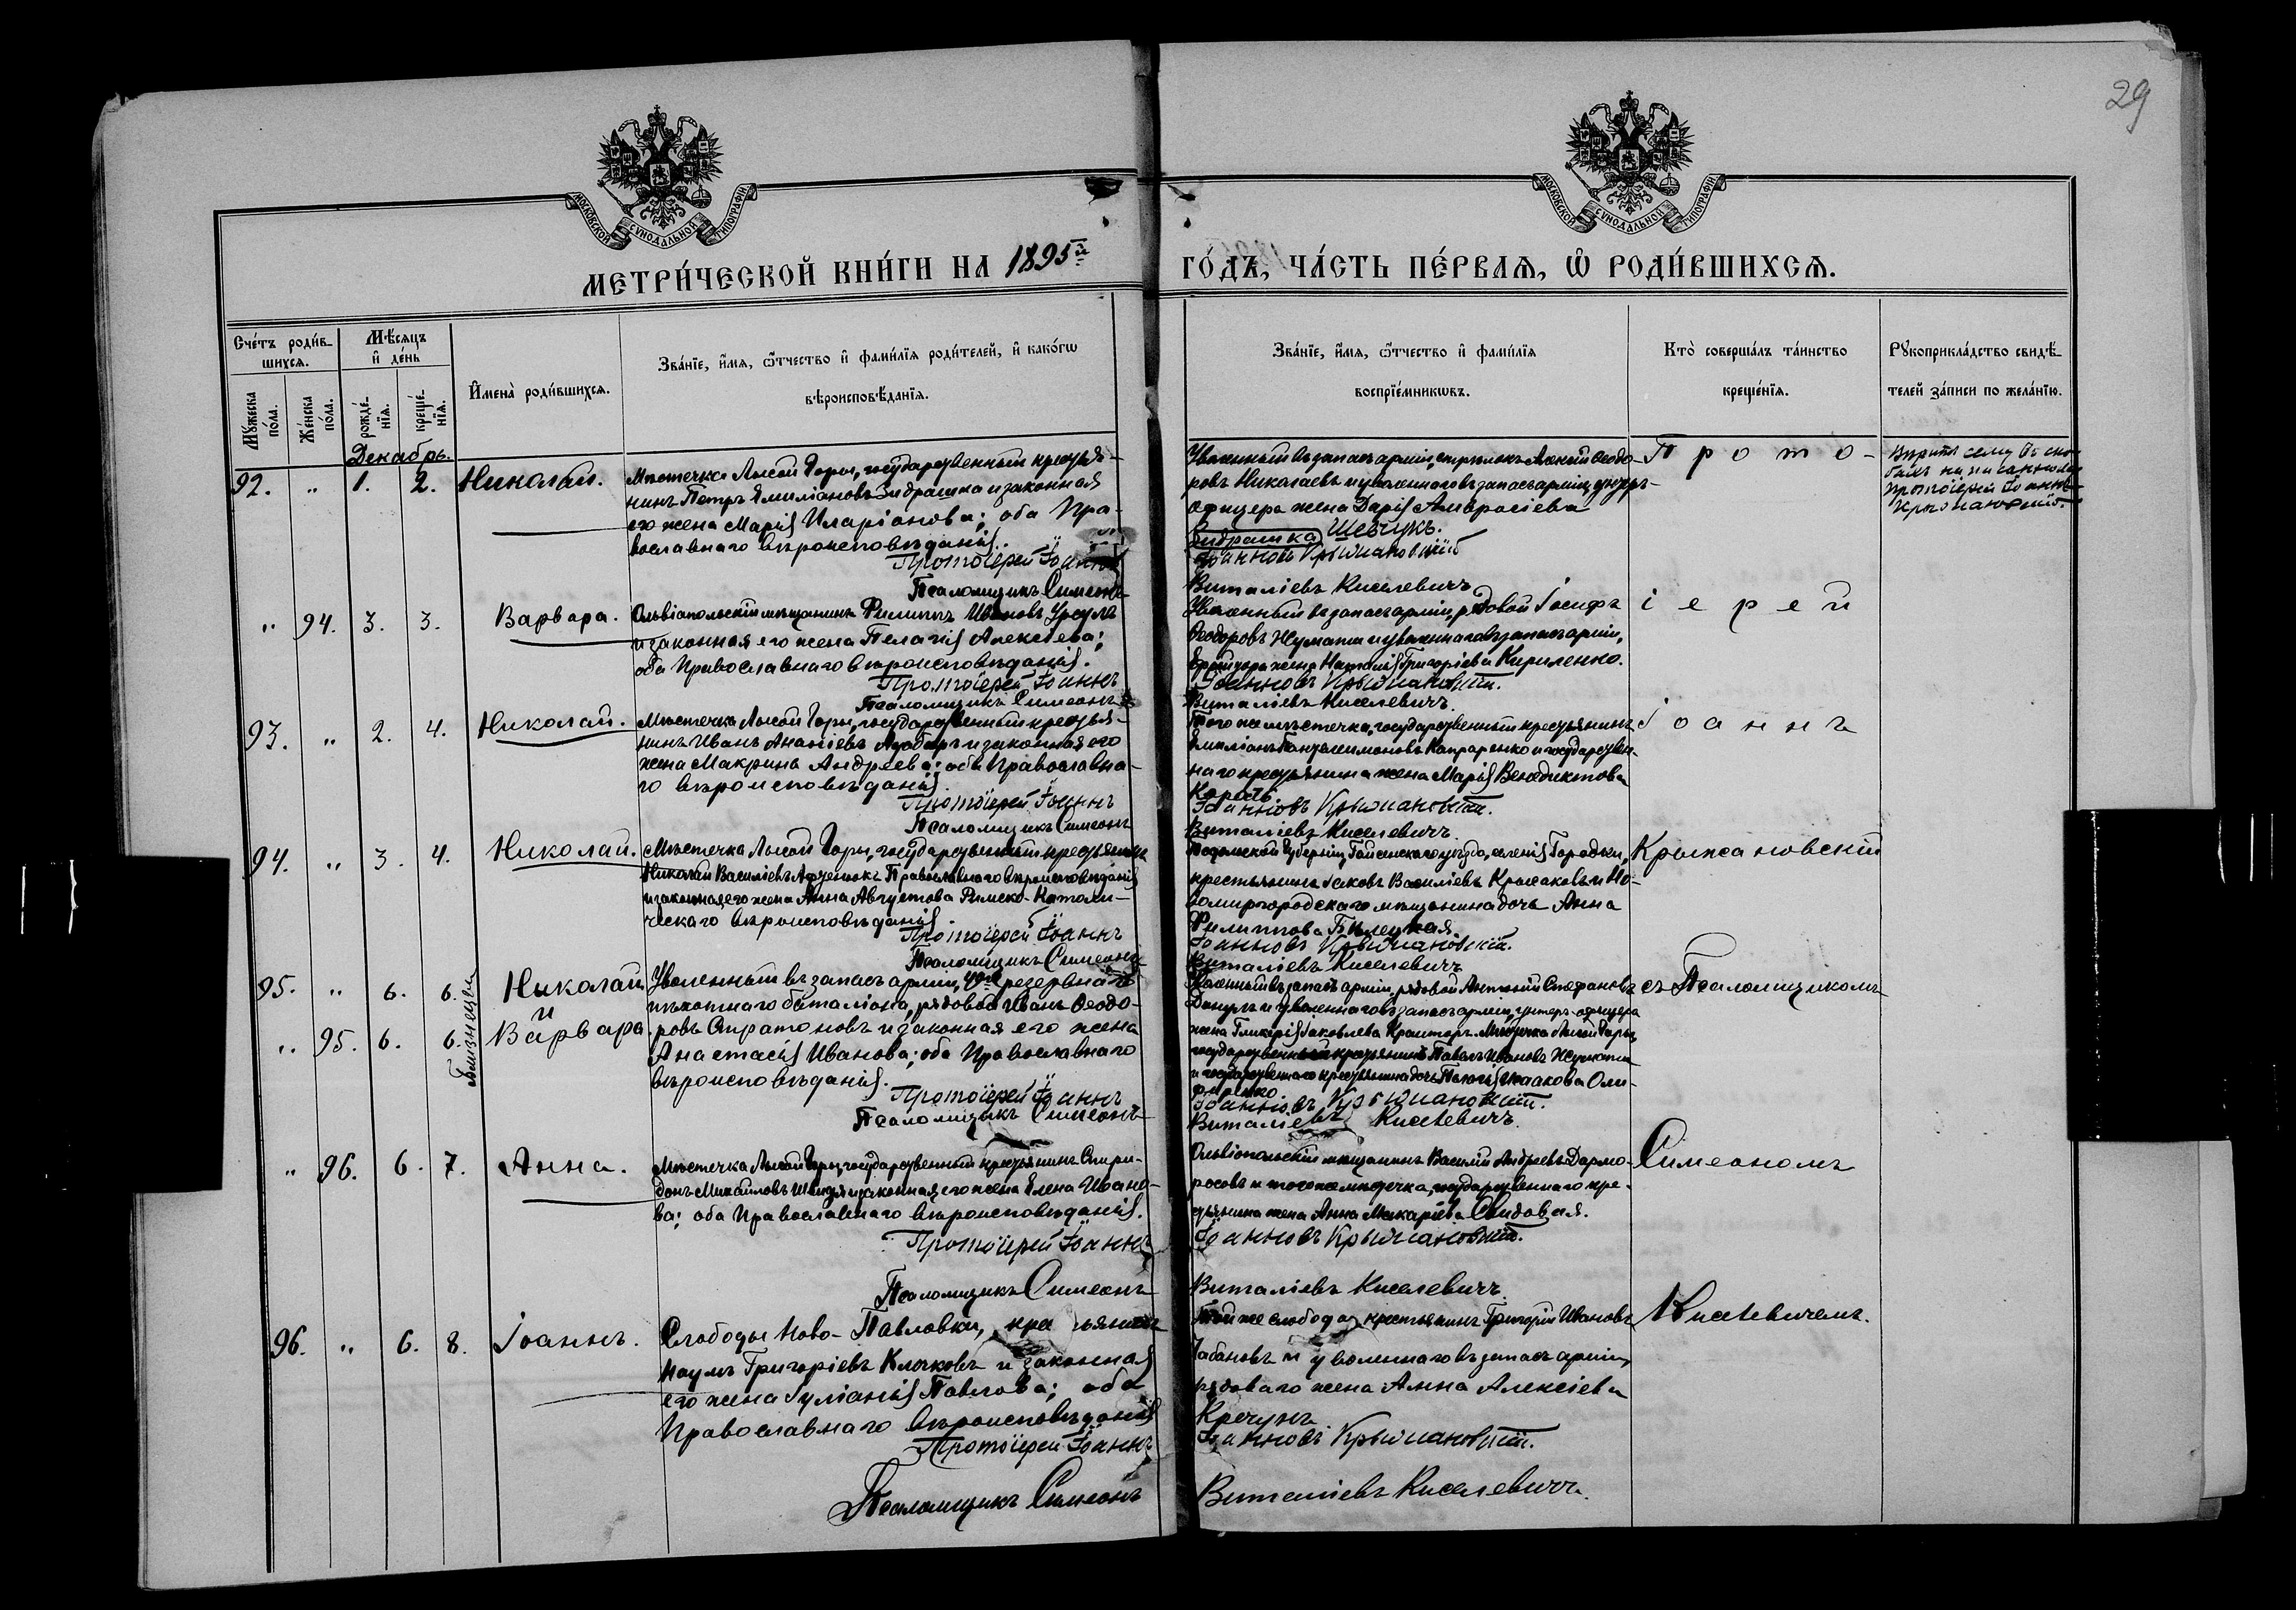 29
МОСКОВСКОЙ СѴНОДАЛЬНОЙ ТИПОГРАФІИ
МОСКОВСКОЙ СѴНОДАЛЬНОЙ ТИПОГРАФІИ
МЕТРИ́ЧЕСКОЙ КНИ́ГИ НА 1895й
ГО́ДЪ, ЧА́СТЬ ПЕ́РВАѦ, Ѡ҆ РОДИ́ВШИХСѦ.
Сче́тъ роди́в-
шихсѧ.
Мѣ́сѧцъ
и҆ де́нь
Мꙋ́жеска
по́ла.
Же́нска
по́ла.
рожде́-
нїѧ.
креще́-
нїѧ.
И҆мена̀ роди́вшихсѧ.
Зва́нїе, и҆́мѧ, ѻ҆́тчество и҆ фами́лїѧ роди́телей, и҆ како́гѡ
вѣроисповѣ́данїѧ.
Зва́нїе, и҆́мѧ, ѻ҆́тчество и҆ фами́лїѧ
воспрїе́мникѡвъ.
Кто̀ соверша́лъ та́инство
креще́нїѧ.
Рꙋкоприкла́дство свидѣ́-
телей за́писи по жела́нїю.
Декабрь.
92. " 1. 2. Николай.
Мѣстечка Лысой Горы, государственный кресть я-
нинъ Петръ Емиліановъ Зидрашка и законная
его жена Марія Иларіонова; оба Пра-
вославнаго вѣроисповѣданія.
Протоіерей Іоаннъ
Псаломщикъ Симеонъ
Уволенный въ запасъ арміи, стрѣлокъ Алексій Ѳеодо-
ровъ Николаевъ и уволеннаго въ запасъ арміи, унтеръ-
офицера жена Дарія Амвросіева
Зидрашка Шевчукъ.
Іоанновъ Крыжановскій
Виталіевъ Киселевичъ
Прото-
протоіерей Іоаннъ
Крыжановскій.
" 94. 3. 3. Варвара.
Ольвіопольскій мѣщанинъ Филиппъ Ивановъ Урсулъ
и законная его жена Пелагія Алексіева;
оба Православнаго вѣроисповѣданія.
Протоіерей Іоаннъ
Псаломщикъ Симеонъ
Уволенный въ запасъ арміи, рядовой Іосифъ
Ѳеодоровъ и уволеннаго въ запасъ арміи,
жена Наталія Григоріева Кириленко.
Іоанновъ Крыжановскій.
Виталіевъ Киселевичъ.
іерей
93. " 2. 4. Николай.
Мѣстечка Лысой Горы, государственный крестья-
нинъ Иванъ Ананіевъ и законная его
жена Макрина Андреева; оба Православна-
го вѣроисповѣданія.
Протоіерей Іоаннъ
Псаломщикъ Симеонъ
Того же мѣстечка, государственный крестьянинъ
Емиліанъ Пантелеимоновъ Капраренко и государствен-
наго крестьянина жена Марія Венедиктова
Іоанновъ Крыжановскій.
Виталіевъ Киселевичъ.
Іоаннъ
94. " 3. 4. Николай.
Мѣстечка Лысой Горы, государственный крестьянинъ
Николай Василіевъ Православнаго вѣроисповѣданія
и законная его жена Анна Августова Римско-Католи-
ческаго вѣроисповѣданія.
Протоіерей Іоаннъ
Псаломщикъ Симеонъ
Подольской Губерніи, Гайсинскаго уѣзда, селенія Городки,
крестьянинъ Іаковъ Василіевъ и Но-
вомиргородскаго мѣщанина дочь Анна
Филиппова Бѣлецкая.
Іоанновъ Крыжановскій.
Виталіевъ Киселевичъ
Крыжановскій
95. " 6. 6. Николай
и
" 95. 6. 6. Варвара
близнецы
Уволенный въ запасъ арміи, резервнаго
пѣхотнаго баталіона, рядовой Иванъ Ѳеодо-
ровъ Стратоновъ и законная его жена
Анастасія Иванова; оба Православнаго
вѣроисповѣданія.
Протоіерей Іоаннъ
Псаломщикъ Симеонъ
Уволенный въ запасъ арміи, рядовой Антоній Стефановъ
и уволеннаго въ запасъ арміи, унтеръ-офицера
жена Гликерія Іаковлева Мѣстечка Лысой Горы,
государственный крестьянинъ Павелъ Ивановъ
и государственнаго крестьянина дочь Исаакова Оли-
ференко
Іоанновъ Крыжановскій.
Виталіевъ Киселевичъ.
съ Псаломщикомъ
" 96. 6. 7. Анна.
Мѣстечка Лысой Горы, государственный крестьянинъ Спири-
донъ Михайловъ и законная его жена Елена Ивано-
ва; оба Православнаго вѣроисповѣданія.
Протоіерей Іоаннъ
Псаломщикъ Симеонъ
Ольвіопольскій мѣщанинъ Василій Андреевъ Дармо-
росовъ и того же мѣстечка, государственнаго кре-
стьянина жена Анна Макаріева
Іоанновъ Крыжановскій.
Виталіевъ Киселевичъ.
Симеономъ
96. " 6. 8. Іоаннъ.
Слободы Ново-Павловки, крестьянинъ
Наумъ Григоріевъ Клочковъ и законная
его жена Іуліанія Павлова; оба
Православнаго вѣроисповѣданія
Протоіерей Іоаннъ
Псаломщикъ Симеонъ
Той же слободы, крестьянинъ Григорій Ивановъ
Чабановъ и уволеннаго въ запасъ арміи,
рядоваго жена Анна Алексіева
Кречунъ.
Іоанновъ Крыжановскій.
Виталіевъ Киселевичъ.
Киселевичемъ.